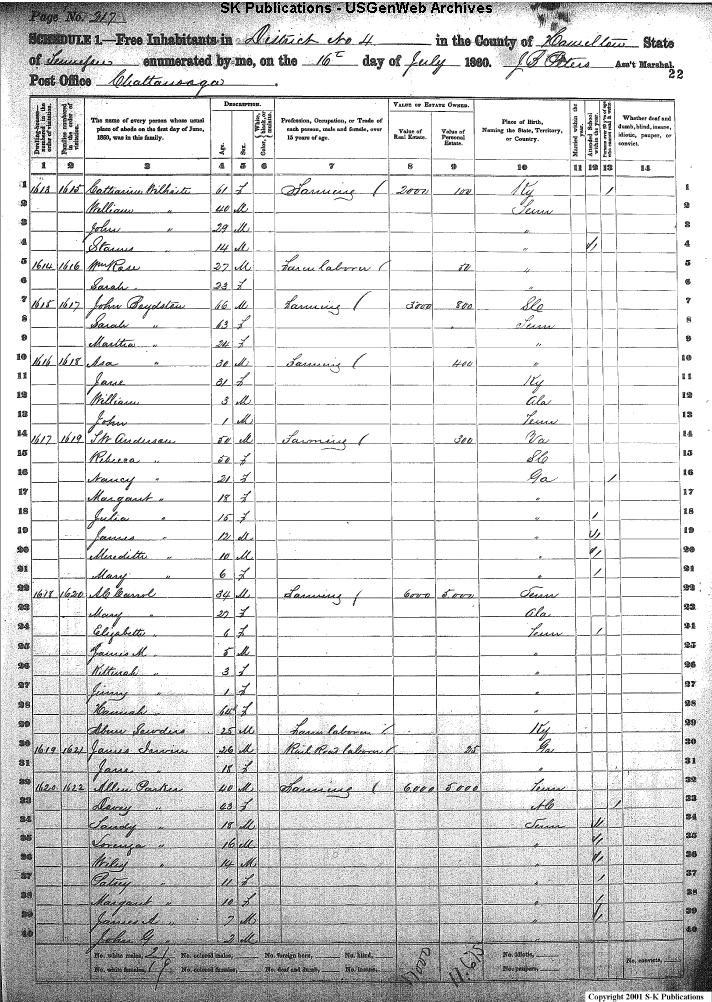 SK Publications - USGenWeb Archives
Page No. 217
SCHEDULE 1.—Free Inhabitants in District No 4 in the County of Hamilton State
of Tennessee enumerated by me, on the 16th day of July 1860. Ass't Marshal.
22
Post Office Chattanooga
Dwelling-houses—numbered in the order of visitation. Families numbered in the order of visitation. The name of every person whose usual place of abode on the first day of June, 1860, was in this family. DESCRIPTION. Age. Sex. Color, White, black, or mulatto. Profession, Occupation, or Trade of each person, male and female, over 15 years of age. VALUE OF ESTATE OWNED. Value of Real Estate. Value of Personal Estate. Place of Birth, Naming the State, Territory, or Country. Married within the year. Attended School within the year. Whether deaf and dumb, blind, insane, idiotic, pauper, or convict.
1 2 3 4 5 6 7 8 9 10 11 12 13 14
1 1613 1615 Catharine Wilhaite 61 F Farming 2000 100 Ky / 1
2 William " 40 M Tenn 2
3 John " 29 M " 3
4 14 M " / 4
5 1614 1616 Wm Rase 27 M Farm laborer 50 " 5
6 Sarah 23 F " 6
7 1615 1617 John Boydston 66 M Farming 3000 800 SC 7
8 Sarah " 63 F Tenn 8
9 Martha " 24 F " 9
10 1616 1618 Asa " 30 M Farming 400 " 10
11 Jane 31 F Ky 11
12 William 3 M Ala 12
13 John 1 M Tenn 13
14 1617 1619 Anderson 50 M Farming 300 Va 14
15 Rebecca " 50 F SC 15
16 Nancy " 21 F Ga / 16
17 Margaret " 18 F " 17
18 Julia " 15 F " / 18
19 James " 12 M " / 19
20 Meredith " 10 M " / 20
21 Mary " 6 F " / 21
22 1618 1620 Carrol 34 M Farming 6000 5000 Tenn 22
23 Mary " 27 F Ala 23
24 Elizabeth " 6 F Tenn / 24
25 James M. " 5 M " 25
26 3 F " 26
27 Jinny " 1 F " 27
28 Hannah " 64 F " 28
29 25 M Farm laborer Ky 29
30 1619 1621 James Irwin 26 M Rail Road laborer 25 Ga 30
31 Jane " 18 F " 31
32 1620 1622 Allen Parker 40 M Farming 6000 5000 Tenn 32
33 " 43 F NC / 33
34 Sandy " 18 M Tenn / 34
35 Lorenza " 16 M " / 35
36 Wiley " 14 M " / 36
37 Patsey " 11 F " / 37
38 Margaret " 10 F " / 38
39 James A. " 7 M " / 39
40 John G 2 M " 40
No. white males, 21 No. colored males, No. foreign born, No. blind, 17,000 11,675 No. idiotic, No. convicts,
No. white females, 19 No. colored females, No. deaf and dumb, No. insane, No. paupers,
Copyright 2001 S-K Publications